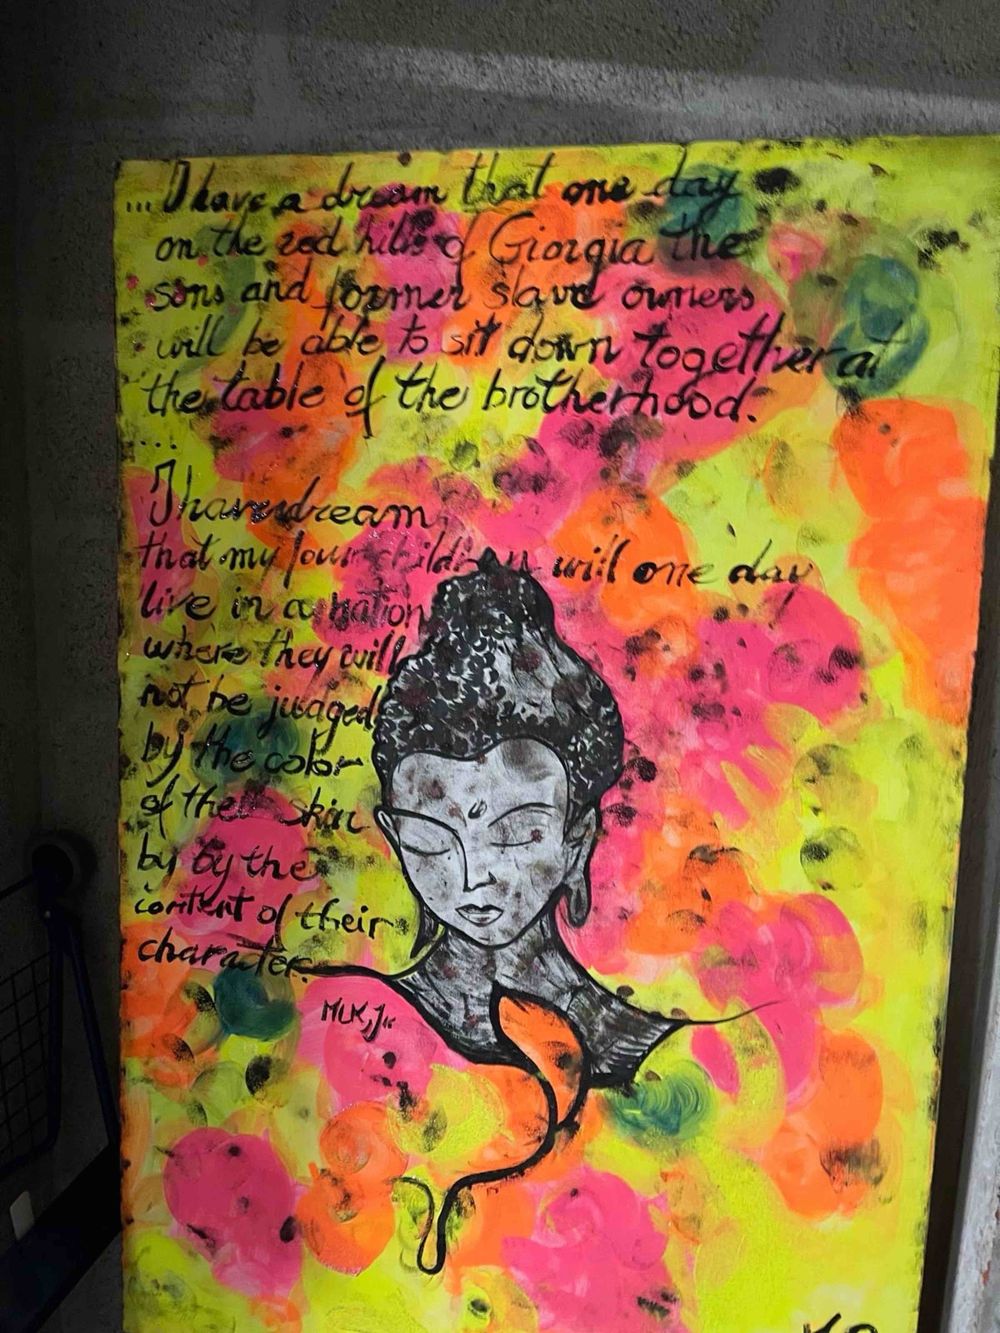 ...I have a dream that one day
on the red hills of Giorgia the
sons and former slave owners
will be able to sit down together at
the table of the brotherhood.
...
I have dream
that my four children will one day
live in a nation
where they will
not be judged
by the color
of their skin
by by the
content of their
character.
MLK, Jr